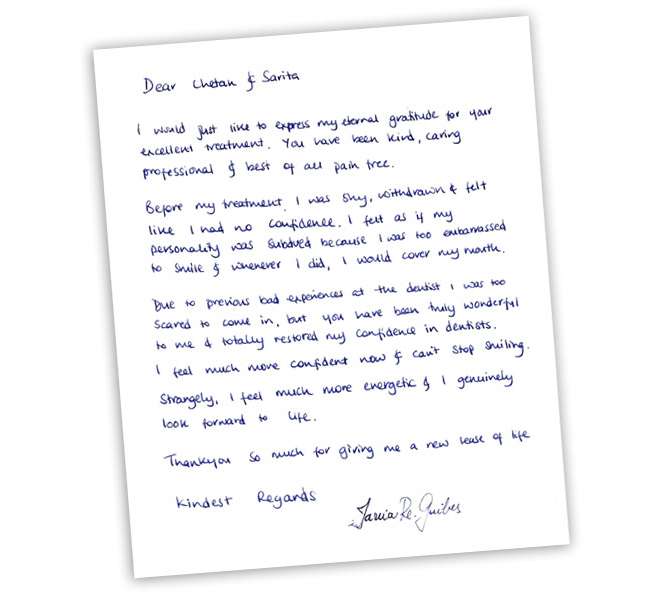 Dear Chetan & Sarita
I would just like to express my eternal gratitude for your
excellent treatment. You have been kind, caring
professional & best of all pain free.
Before my treatment, I was shy, withdrawn & felt
like I had no confidence. I felt as if my
personality was subdued because I was too embarrassed
to smile & whenever I did, I would cover my mouth.
Due to previous bad experiences at the dentist I was too
scared to come in, but you have been truly wonderful
to me & totally restored my confidence in dentists.
I feel much more confident now & can't stop smiling.
Strangely, I feel much more energetic & I genuinely
look forward to life.
Thankyou so much for giving me a new lease of life
Kindest Regards